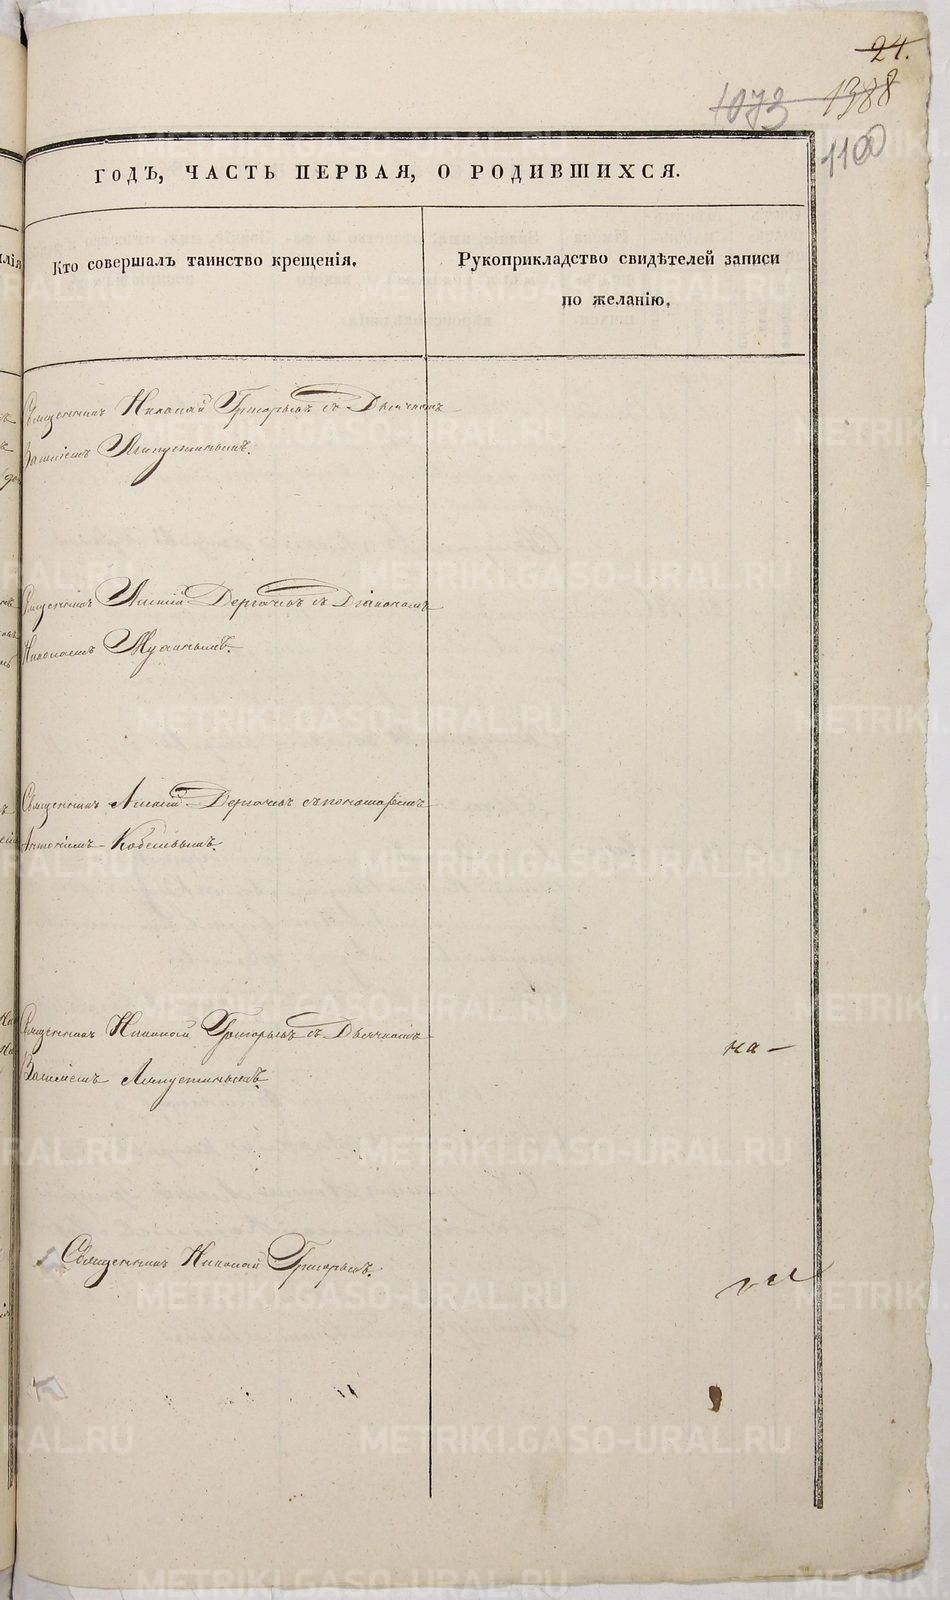 24.
1073 1388
1100
ГОДЪ, ЧАСТЬ ПЕРВАЯ, О РОДИВШИХСЯ.
Кто совершалъ таинство крещенія.
Рукоприкладство свидѣтелей записи
по желанію.
Священникъ Николай Григорьевъ съ Дьячкомъ
Василіемъ Ляпустинымъ.
Священникъ Алексій Дергачевъ съ Діакономъ
Николаемъ
Священникъ Алексій Дергачевъ съ пономаремъ
Антоніемъ Кобелевымъ.
Священникъ Николай Григорьевъ съ Дьячкомъ
на –
Василіемъ Ляпустинымъ
Священникъ Николай Григорьевъ.
METRIKI.GASO-URAL.RU